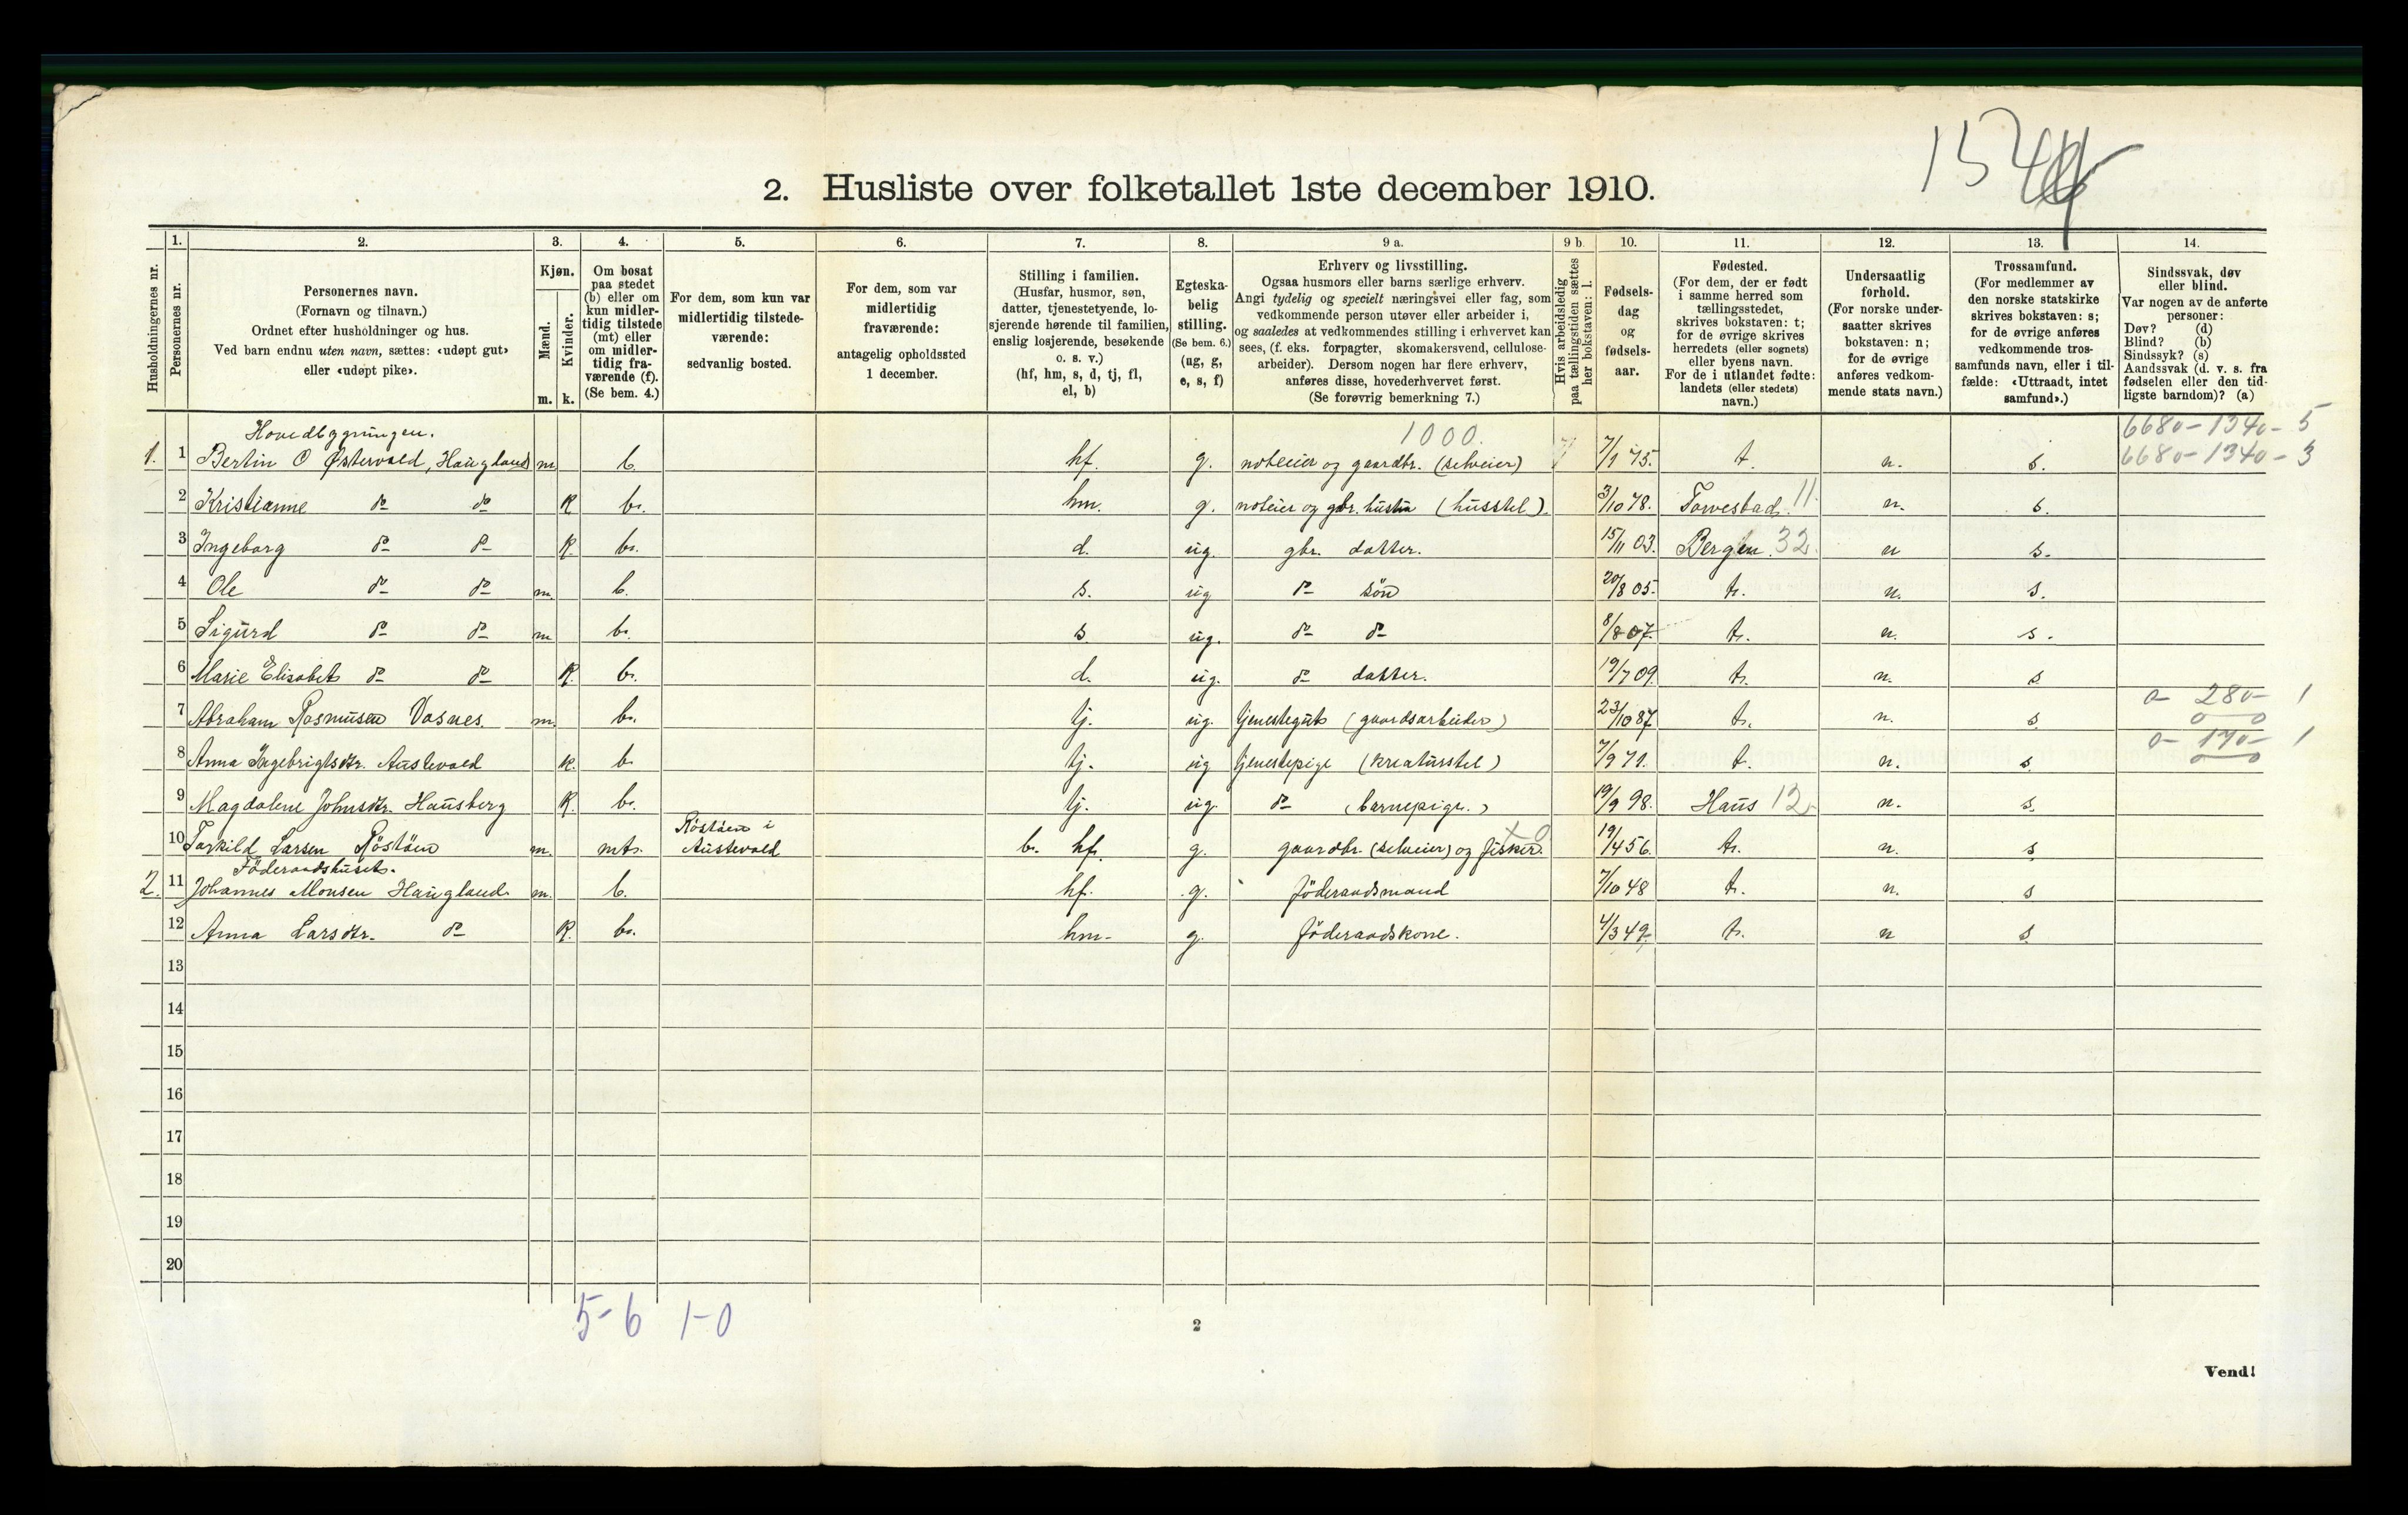 2. Husliste over folketallet 1ste december 1910.
1. 2. 3. 4. 5. 6. 7. 8. 9 a. 9 b. 10. 11. 12. 13. 14.
Husholdningernes nr.
Personernes nr.
Personernes navn.
(Fornavn og tilnavn.)
Ordnet efter husholdninger og hus.
Ved barn endnu uten navn, sættes: «udøpt gut»
eller «udøpt pike».
Kjøn.
Mænd.
Kvinder.
m. k.
Om bosat
paa stedet
(b) eller om
kun midler-
tidig tilstede
(mt) eller
om midler-
tidig fra-
værende (f).
(Se bem. 4.)
For dem, som kun var
midlertidig tilstede-
værende:
sedvanlig bosted.
For dem, som var
midlertidig
fraværende:
antagelig opholdssted
1 december.
Stilling i familien.
(Husfar, husmor, søn,
datter, tjenestetyende, lo-
sjerende hørende til familien,
enslig losjerende, besøkende
o. s. v.)
(hf, hm, s, d, tj, fl,
el, b)
Egteska-
belig
stilling.
(Se bem. 6.)
(ug, g,
e, s, f)
Erhverv og livsstilling.
Ogsaa husmors eller barns særlige erhverv.
Angi tydelig og specielt næringsvei eller fag, som
vedkommende person utøver eller arbeider i,
og saaledes at vedkommendes stilling i erhvervet kan
sees, (f. eks. forpagter, skomakersvend, cellulose-
arbeider). Dersom nogen har flere erhverv,
anføres disse, hovederhvervet først.
(Se forøvrig bemerkning 7.)
Hvis arbeidsledig
paa tællingstiden sættes
her bokstaven: l.
Fødsels-
dag
og
fødsels-
aar.
Fødested.
(For dem, der er født
i samme herred som
tællingsstedet,
skrives bokstaven: t;
for de øvrige skrives
herredets (eller sognets)
eller byens navn.
For de i utlandet fødte:
landets (eller stedets)
navn.)
Undersaatlig
forhold.
(For norske under-
saatter skrives
bokstaven: n;
for de øvrige
anføres vedkom-
mende stats navn.)
Trossamfund.
(For medlemmer av
den norske statskirke
skrives bokstaven: s;
for de øvrige anføres
vedkommende tros-
samfunds navn, eller i til-
fælde: «Uttraadt, intet
samfund».)
Sindssvak, døv
eller blind.
Var nogen av de anførte
personer:
Døv? (d)
Blind? (b)
Sindssyk? (s)
Aandssvak (d. v. s. fra
fødselen eller den tid-
ligste barndom)? (a)
Hovedbygningen. 1000. 6680-1340-5
1. 1 Bertin O Østervold, Haugland m b. hf. g. noteeier og gaardbr. (selveier) 7/1 75. t. n. s. 6680-1340-3
2 Kristianne do do K b. hm. g. noteier og gbr. hustru (husstel). 3/10 78. Torvestad. 11. n. s.
3 Ingeborg do do K. b. d. ug. gbr. datter. 15/11 03. Bergen. 32 n s.
4 Ole do do m. b. s. ug do søn 20/8 05. t. n. s.
5 Sigurd do do m b. s ug. do do 8/8 07. t. n. s.
6 Marie Elisabet do do K. b. d. ug. do datter. 19/7 09. t. n. s
0- 280- 1
7 Abraham Rasmusen Vasnes. m. b. tj. ug. tjenestegut (gaardsarbeider) 23/10 87. t. n. s. 0 0
0- 170- 1
8 Anna Ingebrigtsdtr. Austevold k. b. tj. ug tjenestepige (kreaturstel) 7/9 71. t. n. s. 0 0
9 Magdalene Johnsdtr. Hausberg K. b. tj. ug. do (barnepige.) 19/9 98. Haus 12 n. s.
10 Torkild Larsen Röstöen m. mt. Röstöen i
Austevold b. hf. g. gaardbr. (selveier) og fisker. 19/4 56. t. n. s
Föderaadshuset.
2. 11 Johannes Monsen Haugland m. b. hf. g. föderaadsmand 7/10 48 t. n. s
12 Anna Larsdtr. do K. b. hm. g. föderaadskone. 4/3 49. t. n s
13
14
15
16
17
18
19
20
5-6 1-0
2
Vend!